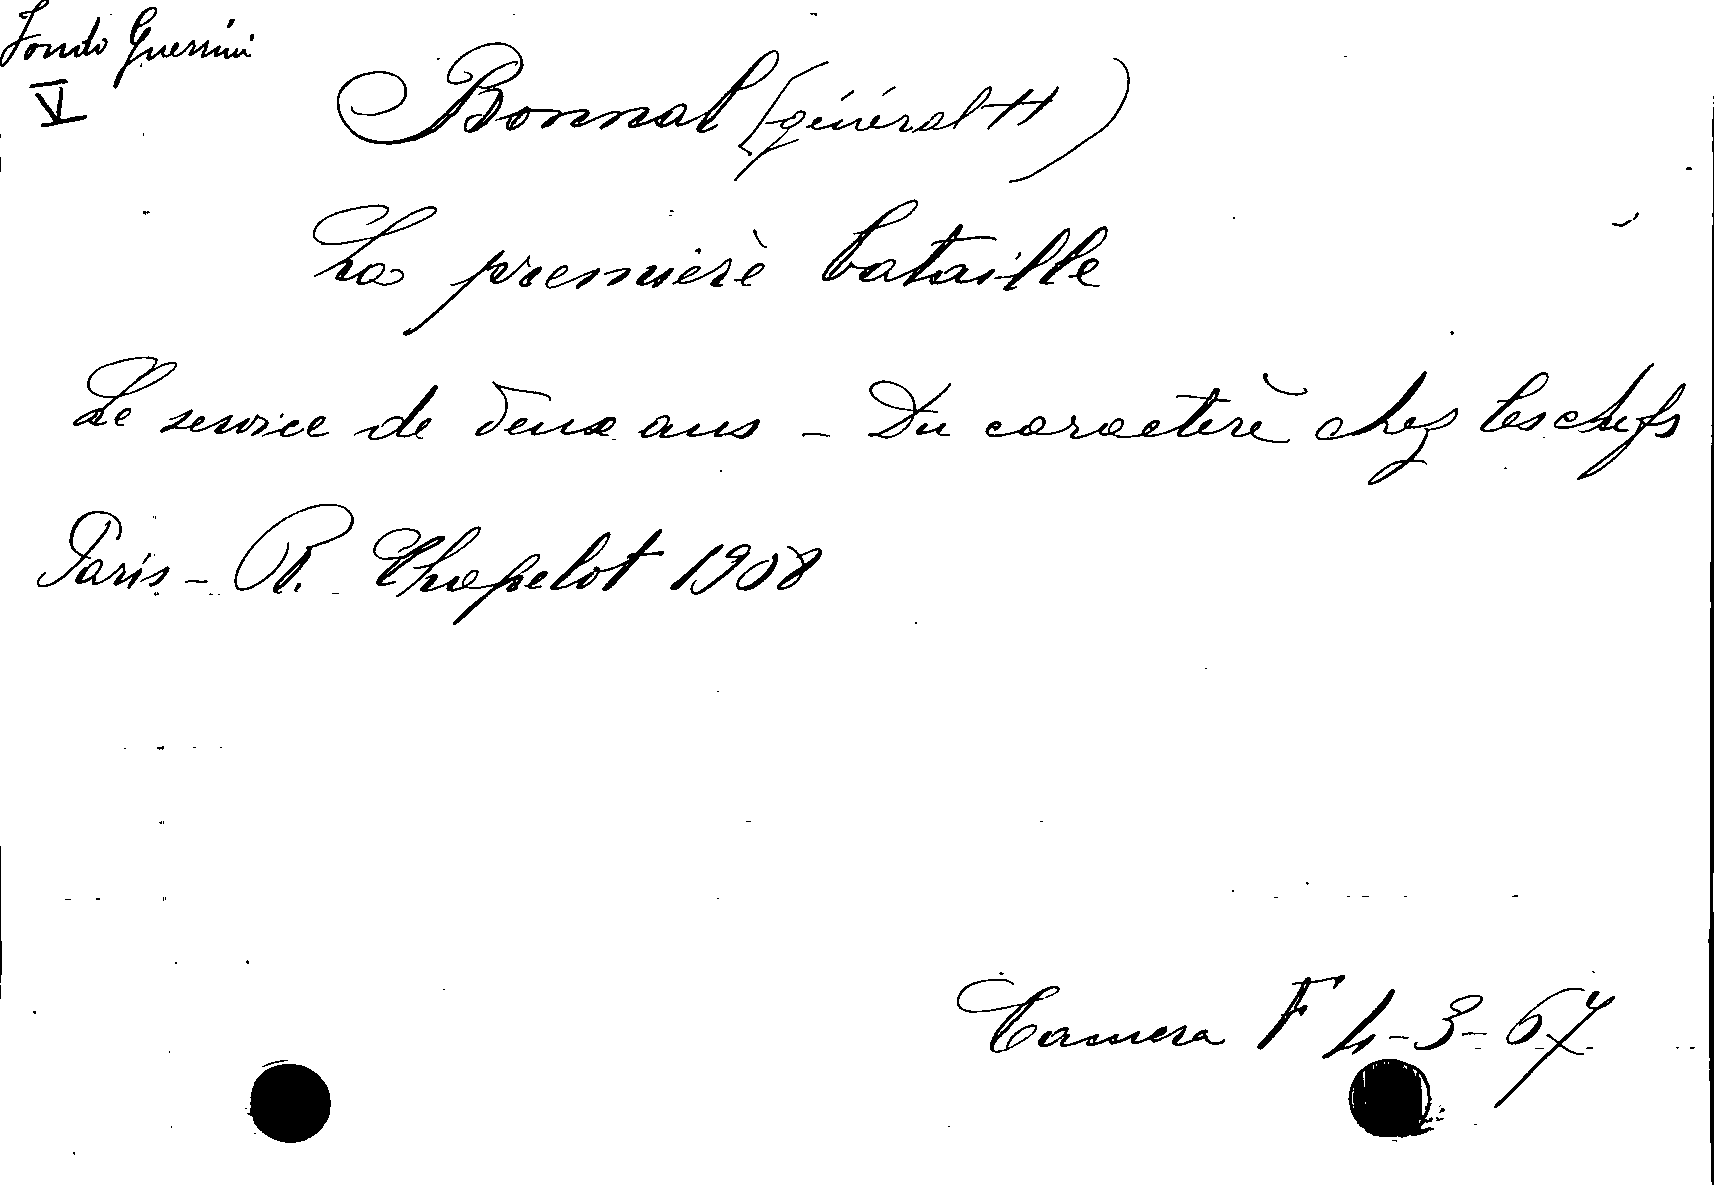 Fondo Guerrini
V
Bonnal (général H)
La première bataille
Le service de deux ans - Du caractère chez les chefs
Paris - R. Chapelot 1908
Camera F 4-3-67